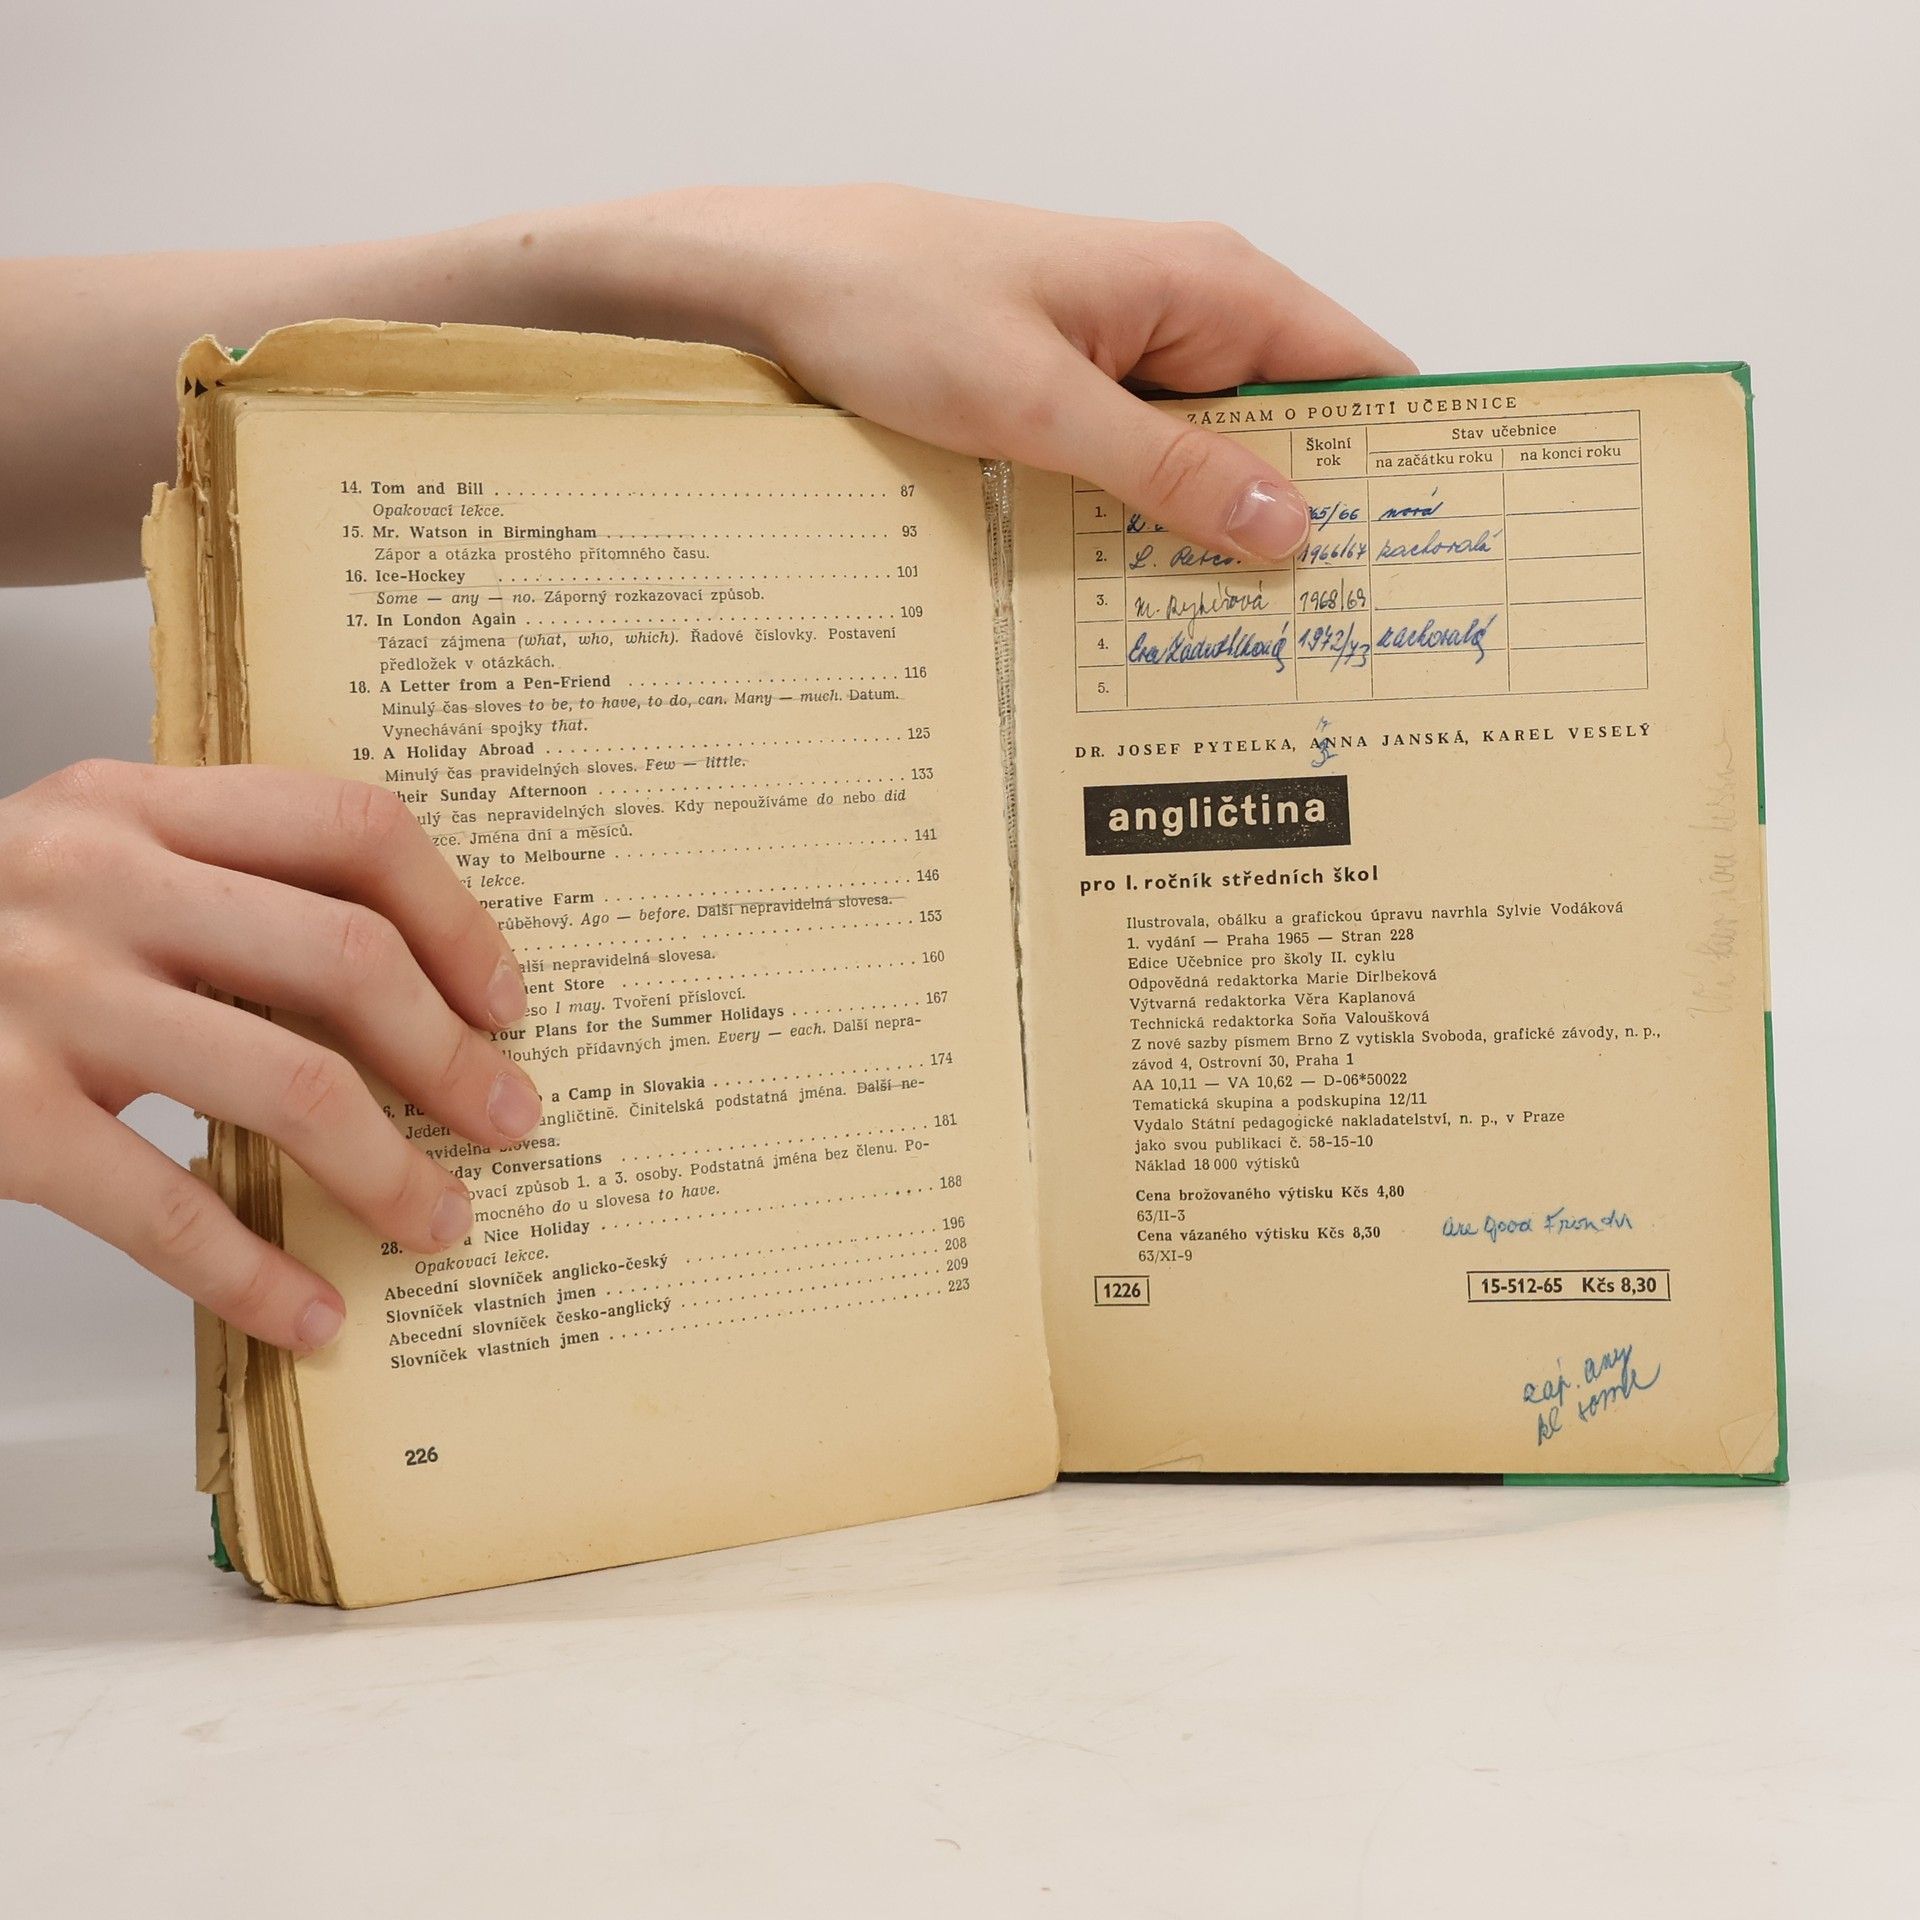 14. Tom and Bill 87
Opakovací lekce.
15. Mr. Watson in Birmingham 93
Zápor a otázka prostého přítomného času.
16. Ice-Hockey 101
Some — any — no. Záporný rozkazovací způsob.
17. In London Again 109
Tázací zájmena (what, who, which). Řadové číslovky. Postavení
předložek v otázkách.
18. A Letter from a Pen-Friend 116
Minulý čas sloves to be, to have, to do, can. Many — much. Datum.
Vynechávání spojky that.
19. A Holiday Abroad 125
Minulý čas pravidelných sloves. Few — little.
Sunday Afternoon 133
čas nepravidelných sloves. Kdy nepoužíváme do nebo did
Jména dní a měsíců.
Way to Melbourne 141
lekce.
Farm 146
Ago — before. Další nepravidelná slovesa.
153
nepravidelná slovesa.
Store 160
I may. Tvoření příslovcí.
Your Plans for the Summer Holidays 167
přídavných jmen. Every — each. Další nepra-
a Camp in Slovakia 174
angličtině. Činitelská podstatná jména. Další ne-
slovesa.
Conversations 181
způsob 1. a 3. osoby. Podstatná jména bez členu. Po-
do u slovesa to have.
28. a Nice Holiday 188
Opakovací lekce.
Abecední slovníček anglicko-český 196
Slovníček vlastních jmen 208
Abecední slovníček česko-anglický 209
Slovníček vlastních jmen 223
226
ZÁZNAM O POUŽITÍ UČEBNICE
Školní rok
Stav učebnice
na začátku roku
na konci roku
1. 65/66 nová
2. L. 1966/67 zachovalá
3. 1968/69
4. Eva 1972/73 zachovalá
5.
DR. JOSEF PYTELKA, ANNA JANSKÁ, KAREL VESELÝ
angličtina
pro I. ročník středních škol
Ilustrovala, obálku a grafickou úpravu navrhla Sylvie Vodáková
1. vydání — Praha 1965 — Stran 228
Edice Učebnice pro školy II. cyklu
Odpovědná redaktorka Marie Dirlbeková
Výtvarná redaktorka Věra Kaplanová
Technická redaktorka Soňa Valoušková
Z nové sazby písmem Brno Z vytiskla Svoboda, grafické závody, n. p.,
závod 4, Ostrovní 30, Praha 1
AA 10,11 — VA 10,62 — D-06*50022
Tematická skupina a podskupina 12/11
Vydalo Státní pedagogické nakladatelství, n. p., v Praze
jako svou publikaci č. 58-15-10
Náklad 18 000 výtisků
Cena brožovaného výtisku Kčs 4,80
63/II-3
Cena vázaného výtisku Kčs 8,30
63/XI-9
are good
1226
15-512-65 Kčs 8,30
záp. any
kl some